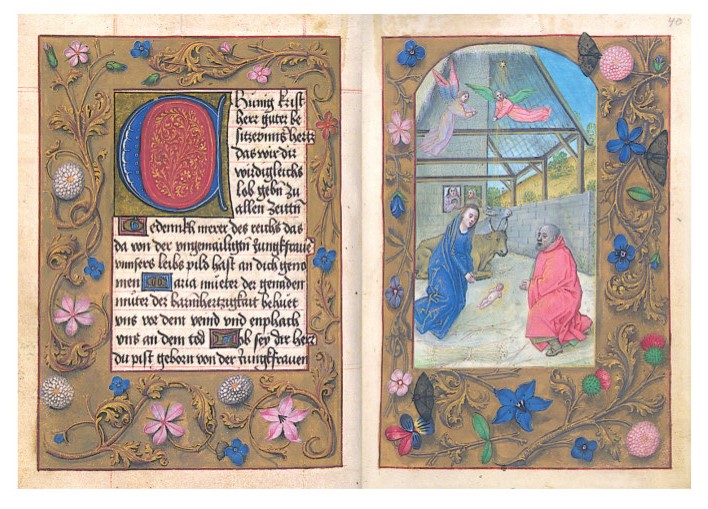 O kunig krist
herr guter be
sitz vnns hertz
das wir dir
wirdigleichs
lob gebn zu
allen zeittn
Gedennkh merer des reichs das
da von der vngemailigtn Jungkfrawe
vnnsers leibs pild hast an dich geno
men Maria mueter der genaden
mueter der barmhertzigkeit behuet
vns vor dem veind vnd enphach
vns an dem tod Lob sey dir herr
du pist geborn von der Jungkfrauen
40